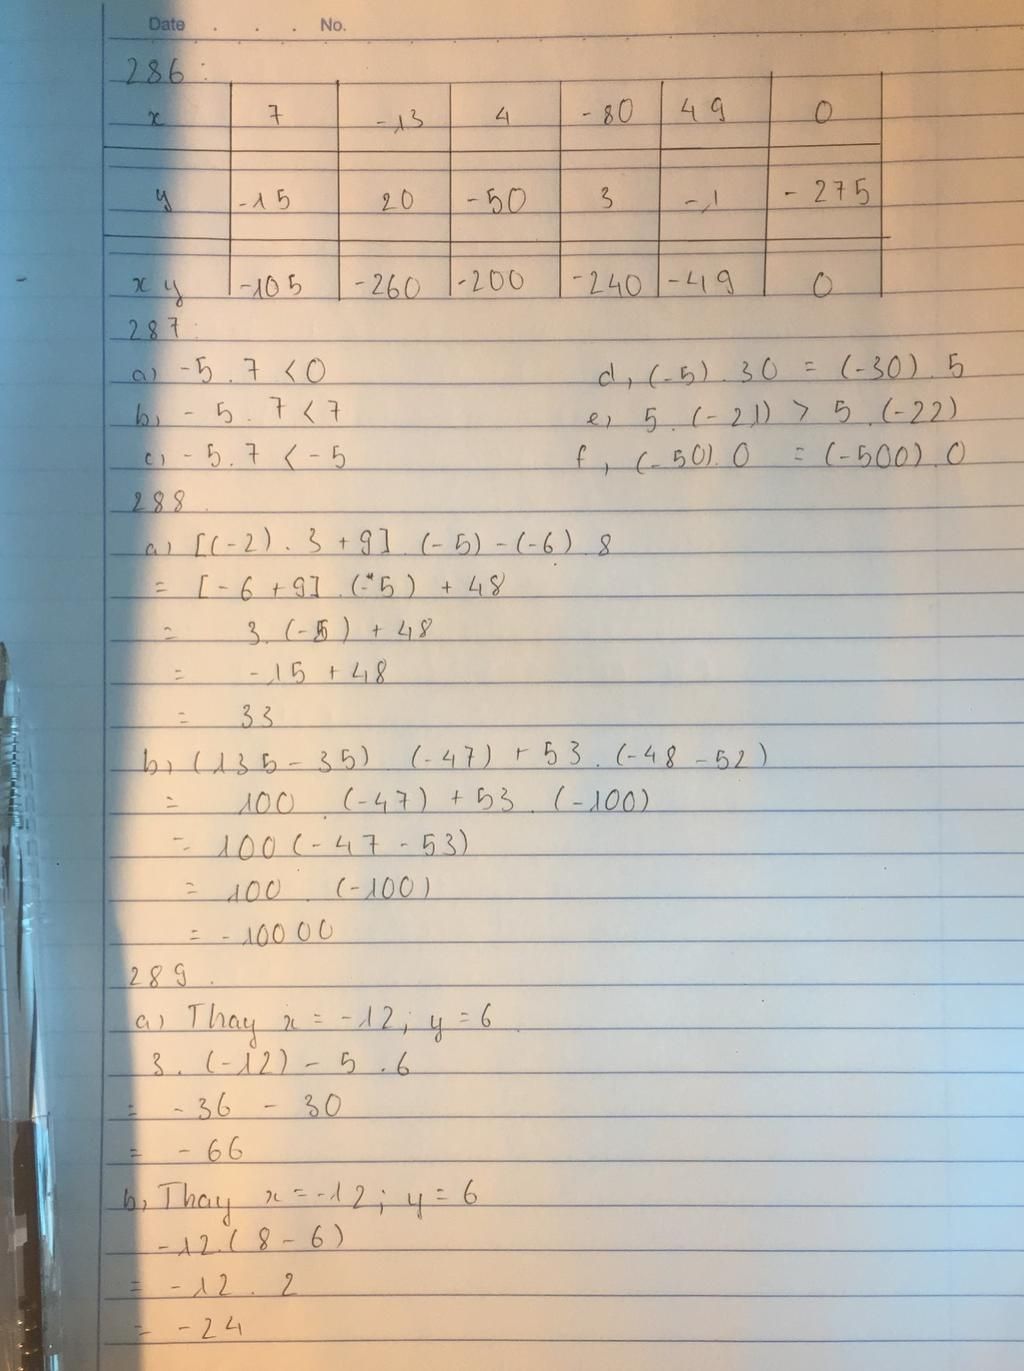 Date . . . No.
286:
x 7 -13 4 -80 49 0
y -15 20 -50 3 -1 -275
xy -105 -260 -200 -240 -49 0
287:
a) -5.7 < 0 d, (-5).30 = (-30).5
b, -5.7 < 7 e, 5.(-21) > 5.(-22)
c, -5.7 < -5 f, (-50).0 = (-500).0
288.
a) [(-2).3+9].(-5)-(-6).8
= [-6+9].(-5)+48
= 3.(-5)+48
= -15+48
= 33
b, (135-35).(-47)+53.(-48-52)
= 100.(-47)+53.(-100)
= 100(-47-53)
= 100.(-100)
= -10000
289.
a) Thay x = -12; y = 6
3.(-12)-5.6
= -36 - 30
= -66
b, Thay x = -12; y = 6
-12.(8-6)
= -12.2
= -24